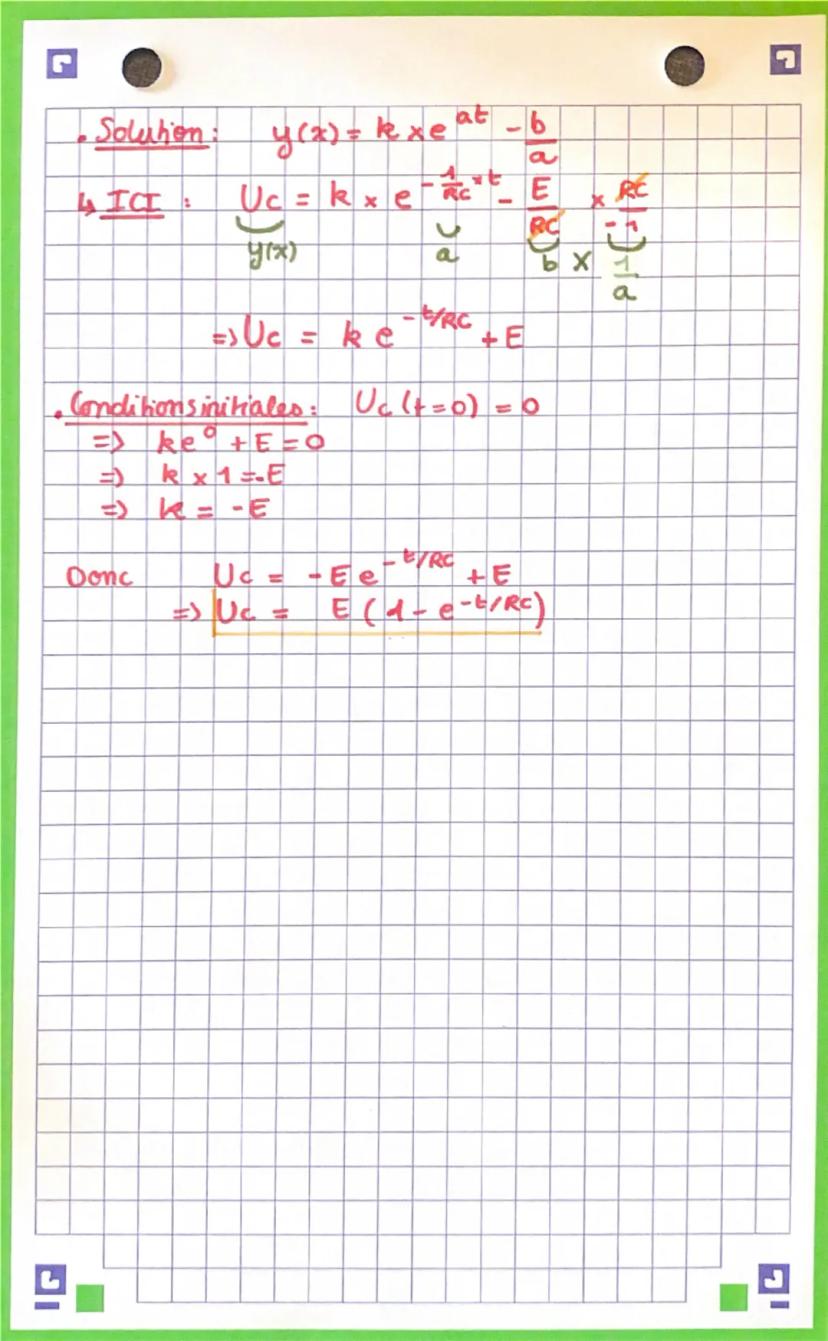 . Solution: y(x) = k x e^at - b/a
↳ ICI : Uc = k x e^-1/RC x t - E/RC x RC/-1
y(x) a b x 1/a
=> Uc = k e^-t/RC + E
. Conditions initiales: Uc (t=0) = 0
=> ke^0 + E = 0
=> k x 1 = -E
=> k = -E
Donc Uc = -E e^-t/RC + E
=> Uc = E (1 - e^-t/RC)